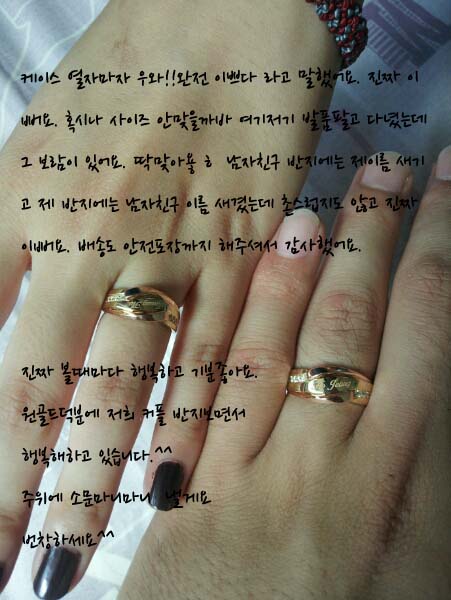 케이스 열자마자 우와!!완전 이쁘다 라고 말했어요. 진짜 이
뻐요. 혹시나 사이즈 안맞을까바 여기저기 발품팔고 다녔는데
그 보람이 있어요. 딱맞아욯ㅎ 남자친구 반지에는 제이름 새기
고 제 반지에는 남자친구 이름 새겼는데 촌스럽지도 않고 진짜
이뻐요. 배송도 안전포장까지 해주셔서 감사했어요.
진짜 볼때마다 행복하고 기분좋아요.
원골드덕분에 저희 커플 반지보면서
행복해하고 있습니다.^^
주위에 소문마니마니 낼게요
번창하세요^^